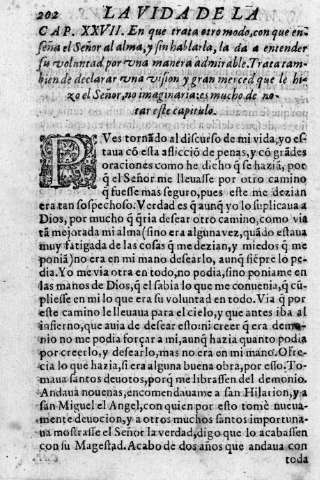 202 LA VIDA DE LA
CAP. XXVII. En que trata otro modo, con que en-
seña el Señor al alma, y sin hablarla, la da a entender
su voluntad por vna manera admirable. Trata tam-
bien de declarar vna vision y gran merced que le hi-
zo el Señor, no imaginaria: es mucho de no-
tar este capitulo.
PVes tornãdo al discurso de mi vida, yo es-
taua cõ esta aflicciõ de penas, y cõ grãdes
oraciones como he dicho q̃ se haziã, porq̃
q̃ el Señor me lleuasse por otro camino
q̃ fuesse mas seguro, pues este me dezian
era tan sospechoso. Verdad es q̃ aunq̃ yo lo suplicaua a
Dios, por mucho q̃ q̃ria desear otro camino, como via
tã mejorada mi alma (sino era algunavez, quãdo estaua
muy fatigada de las cosas q̃ me dezian, y miedos q̃ me
poniã) no era en mi mano desearlo, aunq̃ siẽpre lo pe-
dia. Yo me via otra en todo, no podia, sino poniame en
las manos de Dios, q̃ el sabia lo que me conuenia, q̃ cũ-
pliesse en mi lo que era su voluntad en todo. Via q̃ por
este camino le lleuaua para el cielo, y que antes iba al
infierno, que auia de desear esto: ni creer q̃ era demo-
nio no me podia forçar a mi, aunq̃ hazia quanto podia
por creerlo, y desearlo, mas no era en mi mano. Ofre-
cia lo que hazia, si era alguna buena obra, por esso. To-
maua santos deuotos, porq̃ me librassen del demonio.
Andaua nouenas, encomendauame a san Hilarion, y a
san Miguel el Angel, con quien por esto tomè nueua-
mente deuocion, y a otros muchos santos importuna-
ua mostrasse el Señor la verdad, digo que lo acabassen
con su Magestad. Acabo de dos años que andaua con
toda